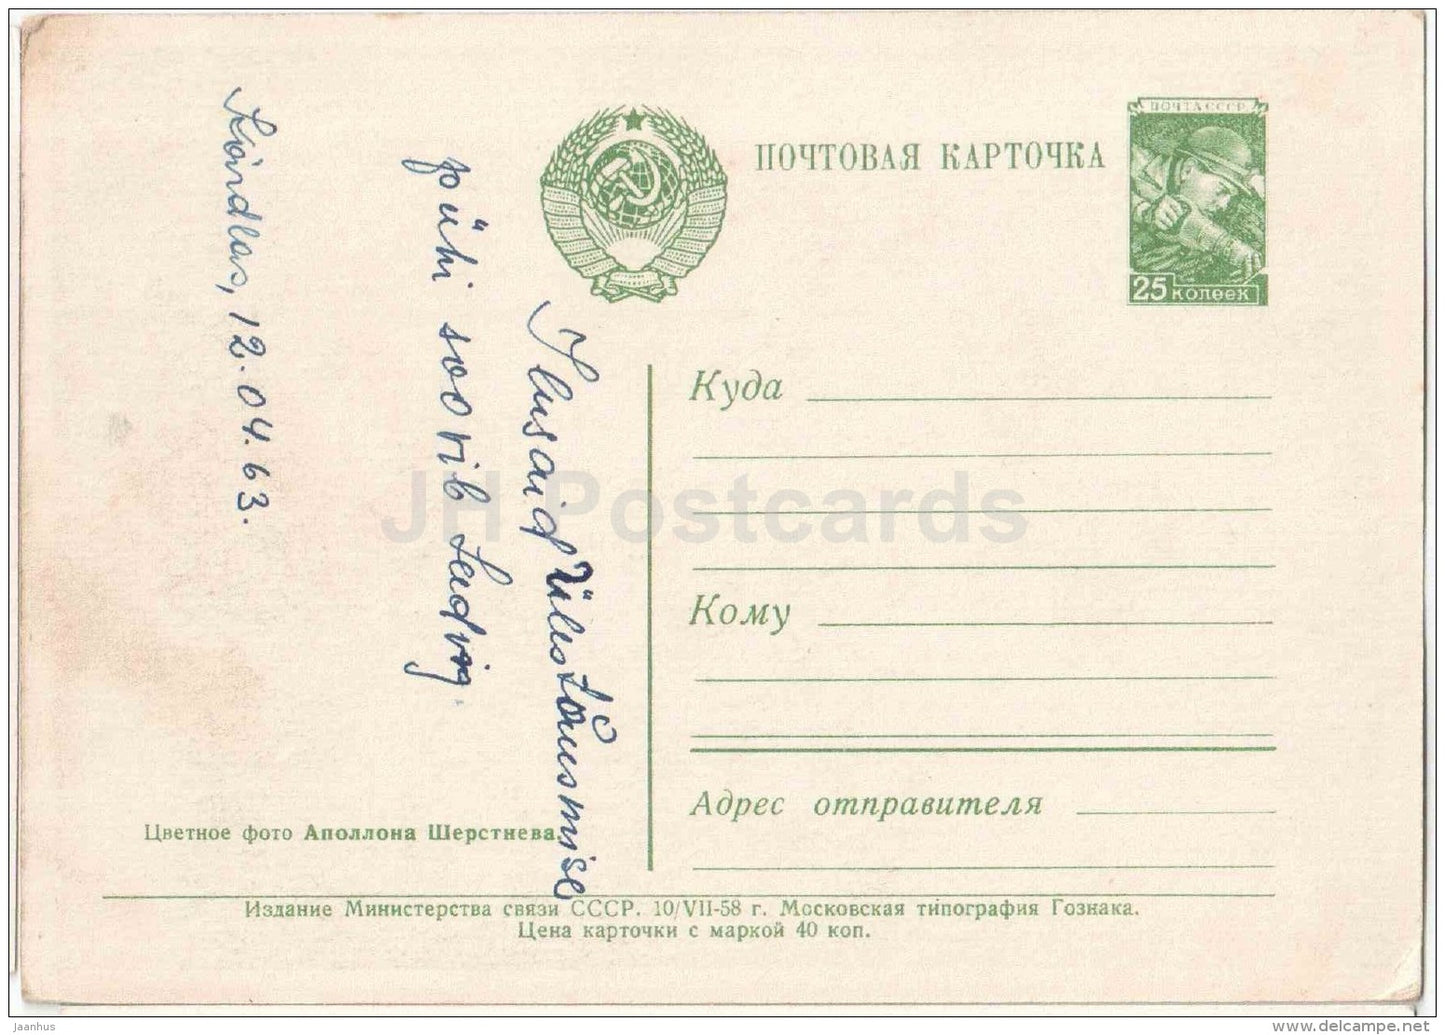 ПОЧТА СССР
25 копеек
ПОЧТОВАЯ КАРТОЧКА
Куда
Кому
Адрес отправителя
Ilusaid Ülestõusmise
pühi soovib Ludvig.
Kärdlas, 12.04.63.
Цветное фото Аполлона Шерстнева.
Издание Министерства связи СССР. 10/VII-58 г. Московская типография Гознака.
Цена карточки с маркой 40 коп.
JH Postcards
jaanhus
www.delcampe.net